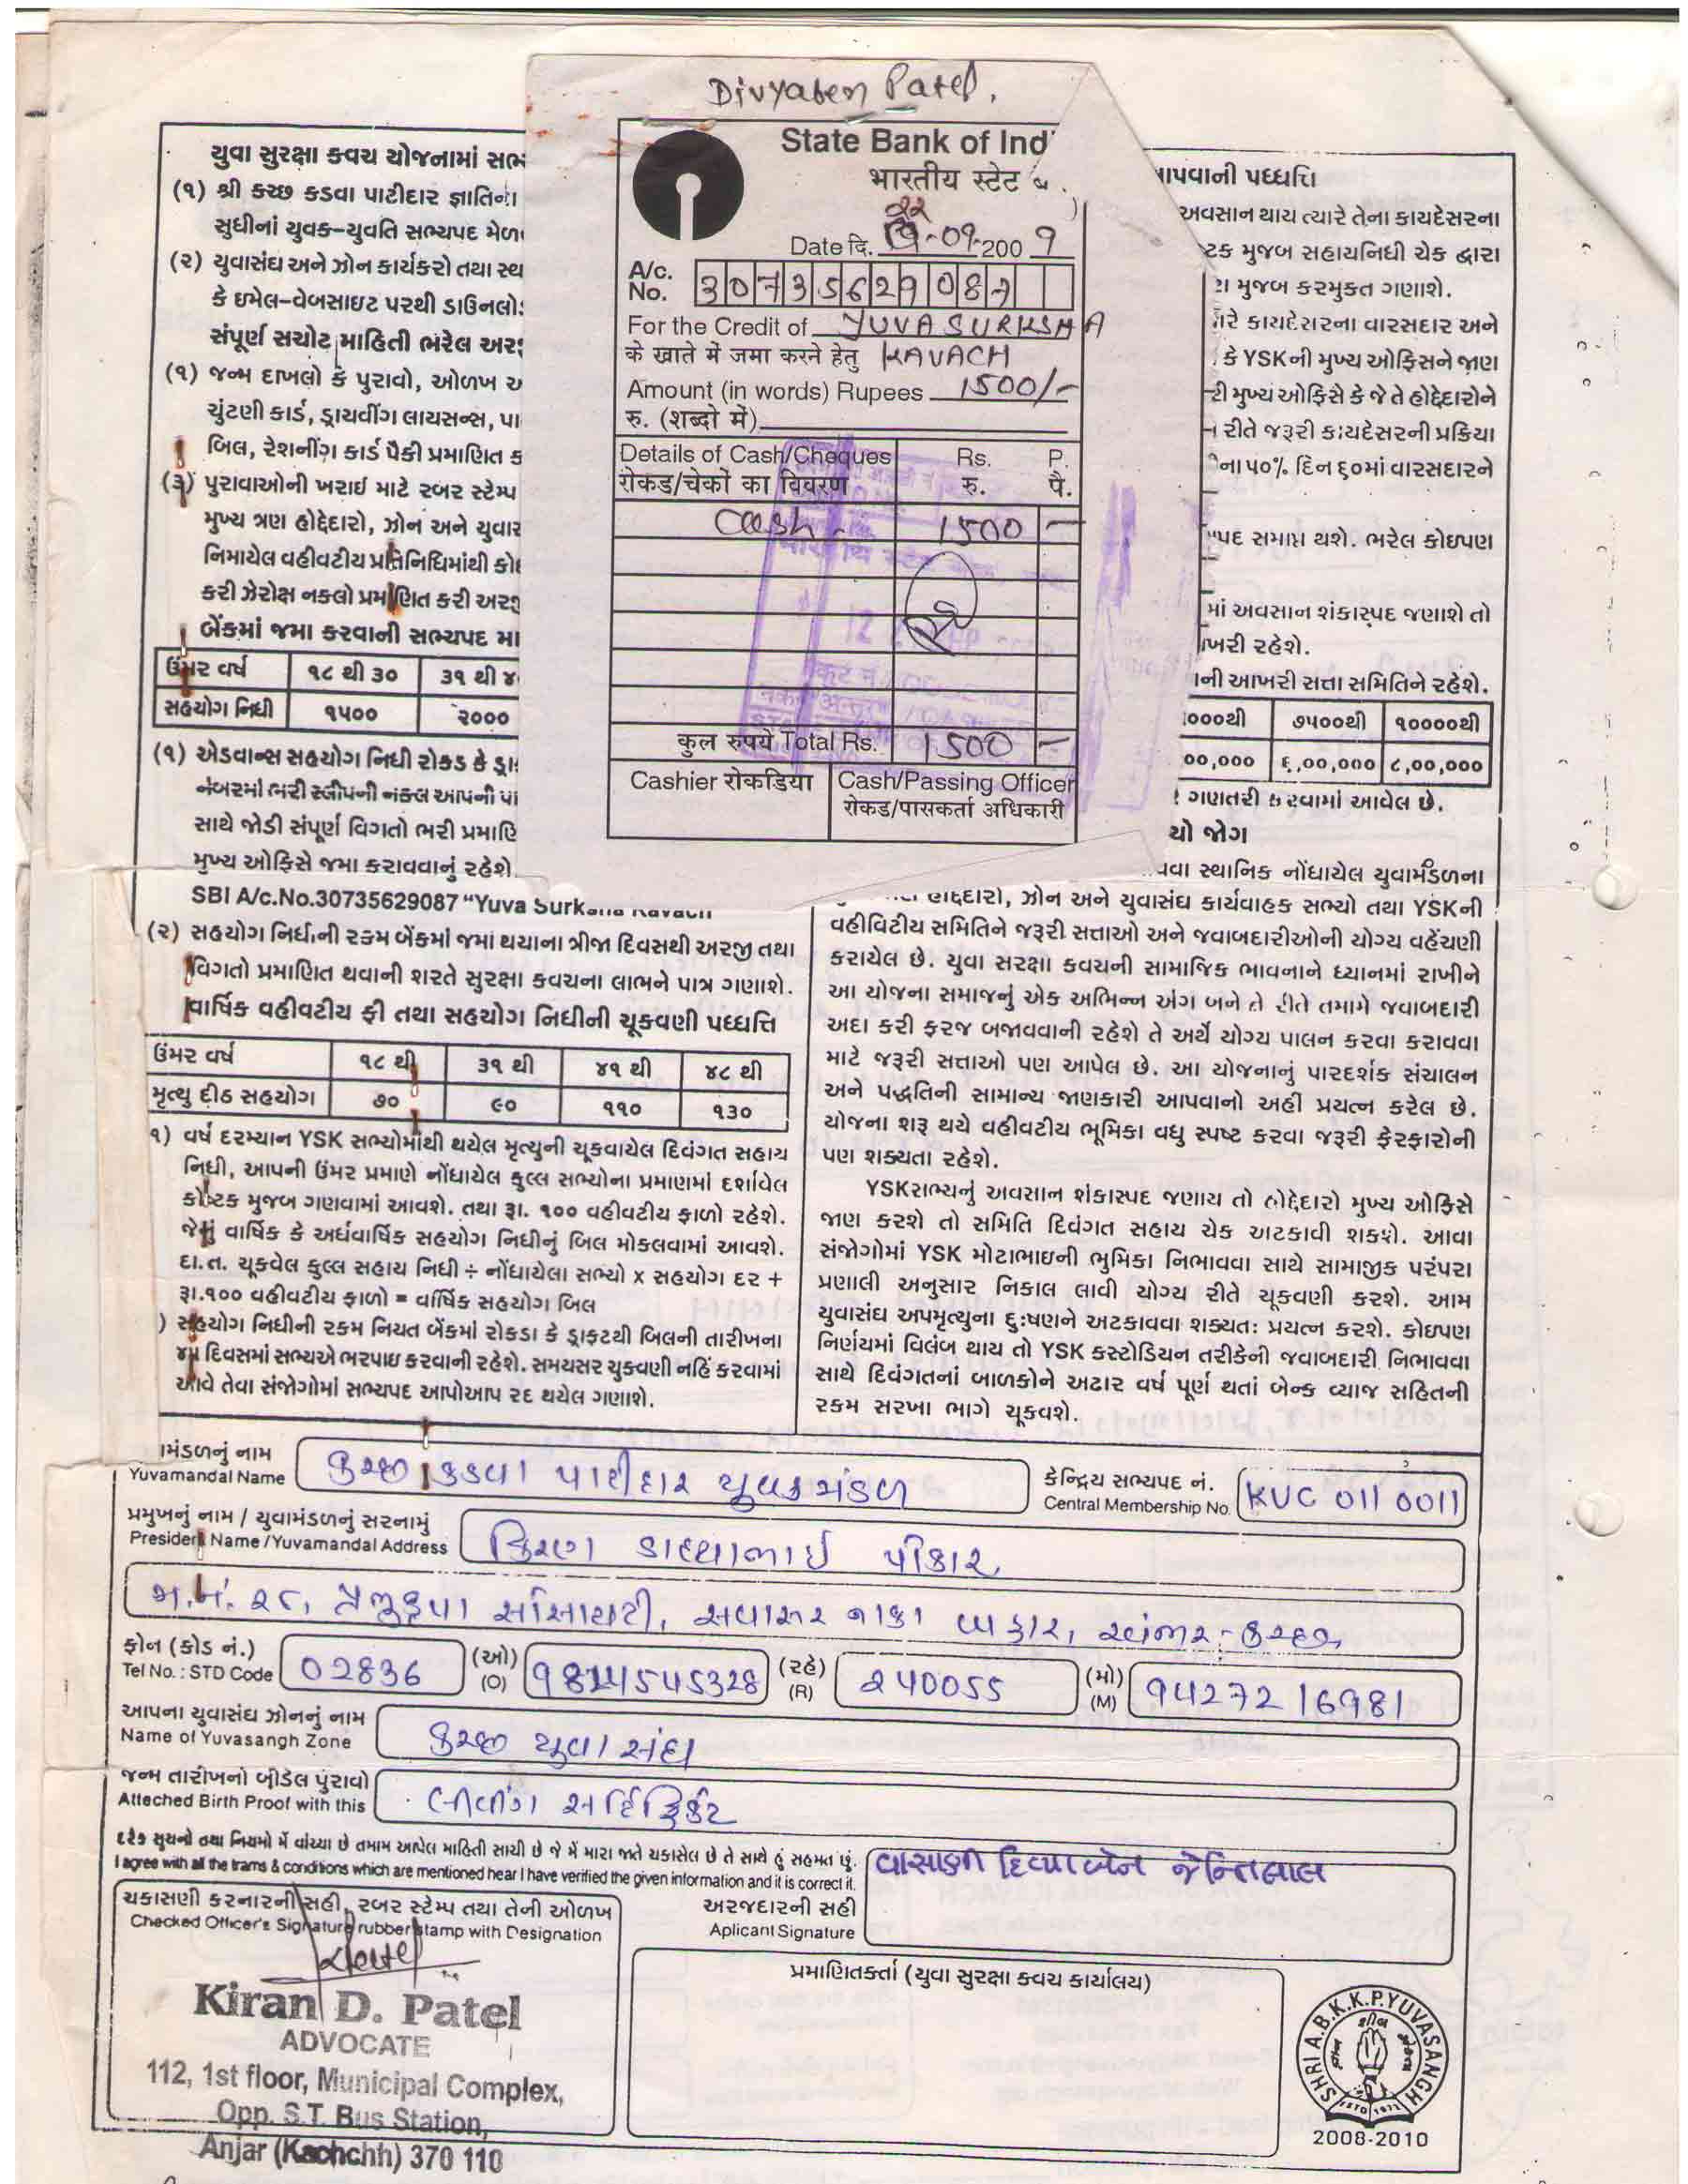 Divyaben Patel.
State Bank of Ind
भारतीय स्टेट
Date दि. -09-2009
A/c. No. 30735629087
For the Credit of YUVA SURKSHA
के खाते में जमा करने हेतु KAVACH
Amount (in words) Rupees 1500/-
रु. (शब्दो में)
Details of Cash/Cheques Rs. P.
रोकड/चेकों का विवरण रु. पै.
Cash - 1500 -
कुल रुपये Total Rs. 1500 -
Cashier रोकडिया Cash/Passing Officer
रोकड/पासकर्ता अधिकारी
યુવા સુરક્ષા કવચ યોજનામાં સભ
(૧) શ્રી કચ્છ કડવા પાટીદાર જ્ઞાતિના
સુધીનાં યુવક-યુવતિ સભ્યપદ મેળ
(૨) યુવાસંઘ અને ઝોન કાર્યકરો તથા સ્થ
કે ઇમેલ-વેબસાઇટ પરથી ડાઉનલો
સંપૂર્ણ સચોટ માહિતી ભરેલ અર
(૧) જન્મ દાખલો કે પુરાવો, ઓળખ
ચુંટણી કાર્ડ, ડ્રાયવીંગ લાયસન્સ, પા
બિલ, રેશનીંગ કાર્ડ પૈકી પ્રમાણિત ક
(૩) પુરાવાઓની ખરાઇ માટે રબર સ્ટેમ્પ
મુખ્ય ત્રણ હોદ્દેદારો, ઝોન અને યુવાર
નિમાયેલ વહીવટીય પ્રતિનિધિમાંથી કો
કરી ઝેરોક્ષ નકલો પ્રમાણિત કરી અર
બેંકમાં જમા કરવાની સભ્યપદ મા
ઉંમર વર્ષ ૧૮ થી ૩૦ ૩૧ થી ૪
સહયોગ નિધી ૧૫૦૦ ૨૦૦૦
(૧) એડવાન્સ સહયોગ નિધી રોકડ કે ડ્રા
નંબરમાં ભરી સ્લીપની નકલ આપની પા
સાથે જોડી સંપૂર્ણ વિગતો ભરી પ્રમાણિ
મુખ્ય ઓફિસે જમા કરાવવાનું રહેશે.
SBI A/c.No.30735629087 "Yuva Surksha Kavach
(૨) સહયોગ નિધીની રકમ બેંકમાં જમા થયાના ત્રીજા દિવસથી અરજી તથા
વિગતો પ્રમાણિત થવાની શરતે સુરક્ષા કવચના લાભને પાત્ર ગણાશે.
વાર્ષિક વહીવટીય ફી તથા સહયોગ નિધીની ચૂકવણી પધ્ધત્તિ
ઉંમર વર્ષ ૧૮ થી ૩૧ થી ૪૧ થી ૪૮ થી
મૃત્યુ દીઠ સહયોગ ૭૦ ૯૦ ૧૧૦ ૧૩૦
૧) વર્ષ દરમ્યાન YSK સભ્યોમાંથી થયેલ મૃત્યુની ચૂકવાયેલ દિવંગત સહાય
નિધી, આપની ઉંમર પ્રમાણે નોંધાયેલ કુલ્લ સભ્યોના પ્રમાણમાં દર્શાવેલ
કોષ્ટક મુજબ ગણવામાં આવશે. તથા રૂા. ૧૦૦ વહીવટીય ફાળો રહેશે.
જેનું વાર્ષિક કે અર્ધવાર્ષિક સહયોગ નિધીનું બિલ મોકલવામાં આવશે.
દા.ત. ચૂકવેલ કુલ્લ સહાય નિધી ÷ નોંધાયેલા સભ્યો x સહયોગ દર +
રૂા.૧૦૦ વહીવટીય ફાળો = વાર્ષિક સહયોગ બિલ
) સહયોગ નિધીની રકમ નિયત બેંકમાં રોકડા કે ડ્રાફ્ટથી બિલની તારીખના
૪૫ દિવસમાં સભ્યએ ભરપાઇ કરવાની રહેશે. સમયસર ચુકવણી નહિં કરવામાં
આવે તેવા સંજોગોમાં સભ્યપદ આપોઆપ રદ થયેલ ગણાશે.
ાપવાની પધ્ધત્તિ
અવસાન થાય ત્યારે તેના કાયદેસરના
ટક મુજબ સહાયનિધી ચેક દ્વારા
રા મુજબ કરમુક્ત ગણાશે.
ારે કાયદેસરના વારસદાર અને
કે YSKની મુખ્ય ઓફિસને જાણ
ટી મુખ્ય ઓફિસે કે જે તે હોદ્દેદારોને
રીતે જરૂરી કાયદેસરની પ્રક્રિયા
ના ૫૦% દિન ૬૦માં વારસદારને
પદ સમાપ્ત થશે. ભરેલ કોઇપણ
માં અવસાન શંકાસ્પદ જણાશે તો
ખરી રહેશે.
ાની આખરી સત્તા સમિતિને રહેશે.
૦૦૦થી ૭૫૦૦થી ૧૦૦૦૦થી
૦૦,૦૦૦ ૬,૦૦,૦૦૦ ૮,૦૦,૦૦૦
ગણતરી કરવામાં આવેલ છે.
યો જોગ
વવા સ્થાનિક નોંધાયેલ યુવામંડળના
હોદ્દેદારો, ઝોન અને યુવાસંઘ કાર્યવાહક સભ્યો તથા YSKની
વહીવિટીય સમિતિને જરૂરી સત્તાઓ અને જવાબદારીઓની યોગ્ય વહેંચણી
કરાયેલ છે. યુવા સરક્ષા કવચની સામાજિક ભાવનાને ધ્યાનમાં રાખીને
આ યોજના સમાજનું એક અભિન્ન અંગ બને તે રીતે તમામે જવાબદારી
અદા કરી ફરજ બજાવવાની રહેશે તે અર્થે યોગ્ય પાલન કરવા કરાવવા
માટે જરૂરી સત્તાઓ પણ આપેલ છે. આ યોજનાનું પારદર્શક સંચાલન
અને પદ્ધતિની સામાન્ય જાણકારી આપવાનો અહીં પ્રયત્ન કરેલ છે.
યોજના શરૂ થયે વહીવટીય ભૂમિકા વધુ સ્પષ્ટ કરવા જરૂરી ફેરફારોની
પણ શક્યતા રહેશે.
YSKસભ્યનું અવસાન શંકાસ્પદ જણાય તો હોદ્દેદારો મુખ્ય ઓફિસે
જાણ કરશે તો સમિતિ દિવંગત સહાય ચેક અટકાવી શકશે. આવા
સંજોગોમાં YSK મોટાભાઇની ભુમિકા નિભાવવા સાથે સામાજીક પરંપરા
પ્રણાલી અનુસાર નિકાલ લાવી યોગ્ય રીતે ચૂકવણી કરશે. આમ
યુવાસંઘ અપમૃત્યુના દુઃષણને અટકાવવા શક્યતઃ પ્રયત્ન કરશે. કોઇપણ
નિર્ણયમાં વિલંબ થાય તો YSK કસ્ટોડિયન તરીકેની જવાબદારી નિભાવવા
સાથે દિવંગતનાં બાળકોને અઢાર વર્ષ પૂર્ણ થતાં બેન્ક વ્યાજ સહિતની
રકમ સરખા ભાગે ચૂકવશે.
ામંડળનું નામ
Yuvamandal Name કચ્છ કડવા પાટીદાર યુવક મંડળ
કેન્દ્રિય સભ્યપદ નં.
Central Membership No. KUC 011 0011
પ્રમુખનું નામ / યુવામંડળનું સરનામું
President Name /Yuvamandal Address કિરણ ડાહ્યાભાઇ પોકાર
મ.નં. ૨૮, સોસાયટી, સવાસર નાકા બહાર, અંજાર-કચ્છ
ફોન (કોડ નં.)
Tel No. : STD Code 02836 (ઓ) (O) 9824545328 (રહે) (R) 240055 (મો) (M) 9427216981
આપના યુવાસંઘ ઝોનનું નામ
Name of Yuvasangh Zone કચ્છ યુવા સંઘ
જન્મ તારીખનો બીડેલ પુરાવો
Atteched Birth Proof with this લીવીંગ સર્ટિફિકેટ
દરેક સૂચનો તથા નિયમો મેં વાંચ્યા છે તમામ આપેલ માહિતી સાચી છે જે મેં મારા જાતે ચકાસેલ છે તે સાથે હું સહમત છું.
I agree with all the trams & conditions which are mentioned hear I have verified the given information and it is correct it.
વાસાણી દિવ્યાબેન જેન્તિલાલ
અરજદારની સહી
Aplicant Signature
ચકાસણી કરનારની સહી, રબર સ્ટેમ્પ તથા તેની ઓળખ
Checked Officer's Signature rubber stamp with Designation
Kiran D. Patel
ADVOCATE
112, 1st floor, Municipal Complex,
Opp. S.T. Bus Station,
Anjar (Kachchh) 370 110
પ્રમાણિતકર્તા (યુવા સુરક્ષા કવચ કાર્યાલય)
SHRI A.B.K.K.P.YUVASANGH
ESTD 1977
2008-2010